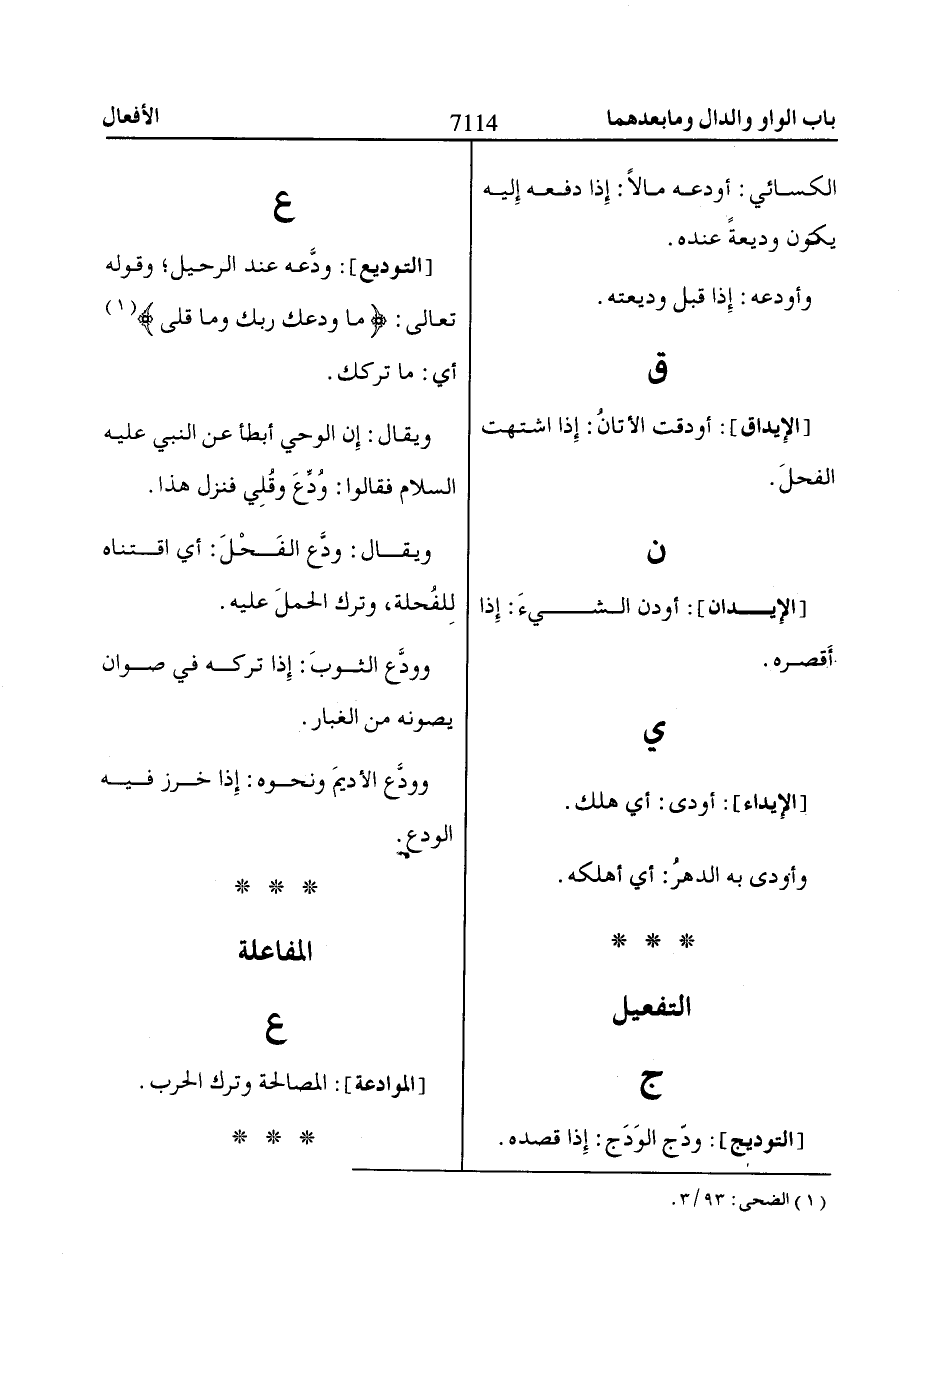 باب الواو والدال ومابعدهما
7114
الأفعال
الكسائي: أودعه مالاً: إذا دفعه إليه
يكون وديعةً عنده.
وأودعه: إذا قبل وديعته.
ق
[الإيداق]: أودقت الأتانُ: إذا اشتهت
الفحلَ.
ن
[الإيدان]: أودن الشيءَ: إذا
أقصره.
ي
[الإيداء]: أودى: أي هلك.
وأودى به الدهرُ: أي أهلكه.
* * *
التفعيل
ج
[التوديج]: ودّج الوَدَج: إذا قصده.
ع
[التوديع]: ودَّعه عند الرحيل؛ وقوله
تعالى: ﴿ما ودعك ربك وما قلى﴾(١)
أي: ما تركك.
ويقال: إن الوحي أبطأ عن النبي عليه
السلام فقالوا: وُدِّعَ وقُلِي فنزل هذا.
ويقال: ودَّع الفَحْلَ: أي اقتناه
للفُحلة، وترك الحملَ عليه.
وودَّع الثوبَ: إذا تركه في صوان
يصونه من الغبار.
وودَّع الأديمَ ونحوه: إذا خرز فيه
الودع.
* * *
المفاعلة
ع
[الموادعة]: المصالحة وترك الحرب.
* * *
(١) الضحى: ٩٣/٣.